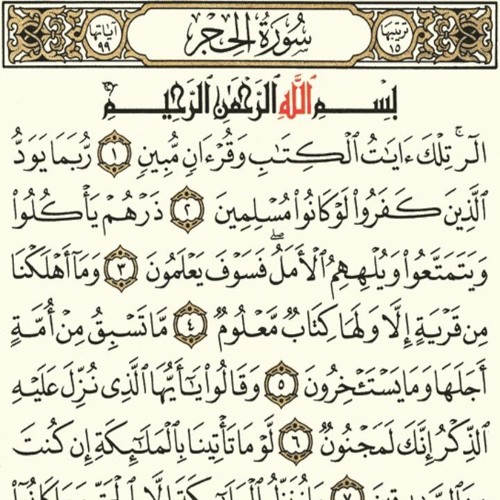 ترتيبها ١٥ سُورَةُ الحِجْر آياتها ٩٩
بِسْمِ ٱللَّهِ ٱلرَّحْمَٰنِ ٱلرَّحِيمِ
الٓرۚ تِلْكَ ءَايَٰتُ ٱلْكِتَٰبِ وَقُرْءَانٍ مُّبِينٍ ١ رُّبَمَا يَوَدُّ
ٱلَّذِينَ كَفَرُوا۟ لَوْ كَانُوا۟ مُسْلِمِينَ ٢ ذَرْهُمْ يَأْكُلُوا۟
وَيَتَمَتَّعُوا۟ وَيُلْهِهِمُ ٱلْأَمَلُۖ فَسَوْفَ يَعْلَمُونَ ٣ وَمَآ أَهْلَكْنَا
مِن قَرْيَةٍ إِلَّا وَلَهَا كِتَابٌ مَّعْلُومٌ ٤ مَّا تَسْبِقُ مِنْ أُمَّةٍ
أَجَلَهَا وَمَا يَسْتَـْٔخِرُونَ ٥ وَقَالُوا۟ يَٰٓأَيُّهَا ٱلَّذِى نُزِّلَ عَلَيْهِ
ٱلذِّكْرُ إِنَّكَ لَمَجْنُونٌ ٦ لَّوْ مَا تَأْتِينَا بِٱلْمَلَٰٓئِكَةِ إِن كُنتَ